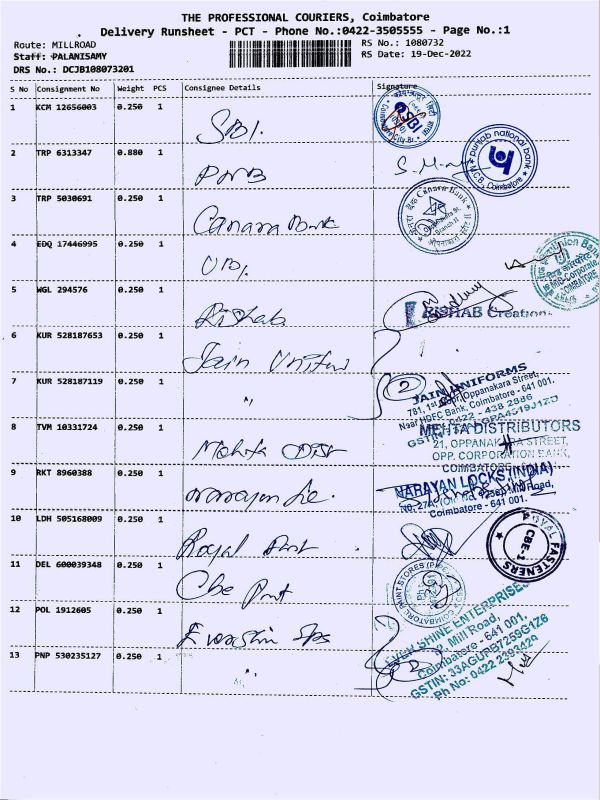 THE PROFESSIONAL COURIERS, Coimbatore
Delivery Runsheet - PCT - Phone No.:0422-3505555 - Page No.:1
Route: MILLROAD
RS No.: 1080732
Staff: PALANISAMY
RS Date: 19-Dec-2022
DRS No.: DCJB108073201
S No Consignment No Weight PCS Consignee Details Signature
1 KCM 12656003 0.250 1 SBI.
SBI
2 TRP 6313347 0.880 1 PNB
punjab national bank
M.C.B., Coimbatore
3 TRP 5030691 0.250 1 Canara Bank
Canara Bank
4 EDQ 17446995 0.250 1 UBI.
Union Bank
COIMBATORE
5 WGL 294576 0.250 1 Rishab
RISHAB Creation
6 KUR 528187653 0.250 1 Jain Uniform
7 KUR 528187119 0.250 1 "
2
JAIN UNIFORMS
781, 1st Floor, Oppanakara Street,
Near HDFC Bank, Coimbatore - 641 001.
0422 - 438 2886
8 TVM 10331724 0.250 1 Mehta Dist
MEHTA DISTRIBUTORS
21, OPPANAKARA STREET,
OPP. CORPORATION BANK,
COIMBATORE
9 RKT 8960388 1 Narayan Lo
NARAYAN LOCKS (INDIA)
No, 27A, Mill Road,
Coimbatore - 641 001.
10 LDH 505168009 0.250 1 Royal
ROYAL FASTENERS
CBE-1
11 DEL 600039348 0.250 1 Cbe Paint
COIMBATORE PAINT STORES
12 POL 1912605 0.250 1
13 PNP 530235127 0.250 1 "
EVER SHINE ENTERPRISES
Mill Road,
Coimbatore - 641 001,
GSTIN: 33AGUPB7259G1Z6
Ph No: 0422 2393429